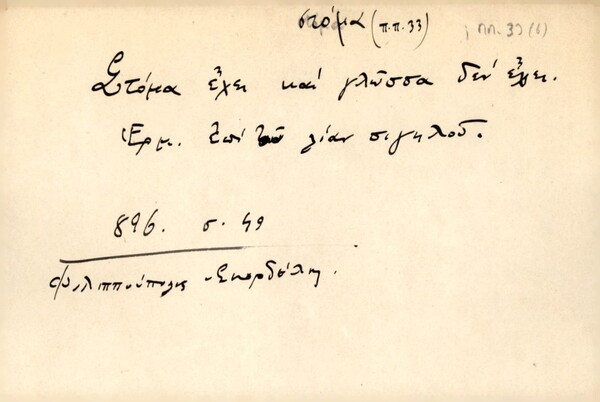 στόμα (π.π. 33) ; ππ. 33 (6)
Στόμα ἔχει καί γλῶσσα δέν ἔχει.
Ἑρμ. Ἐπί τοῦ λίαν σιγηλοῦ.
896. σ. 49
Φιλιππούπολις Σκορδέλη.